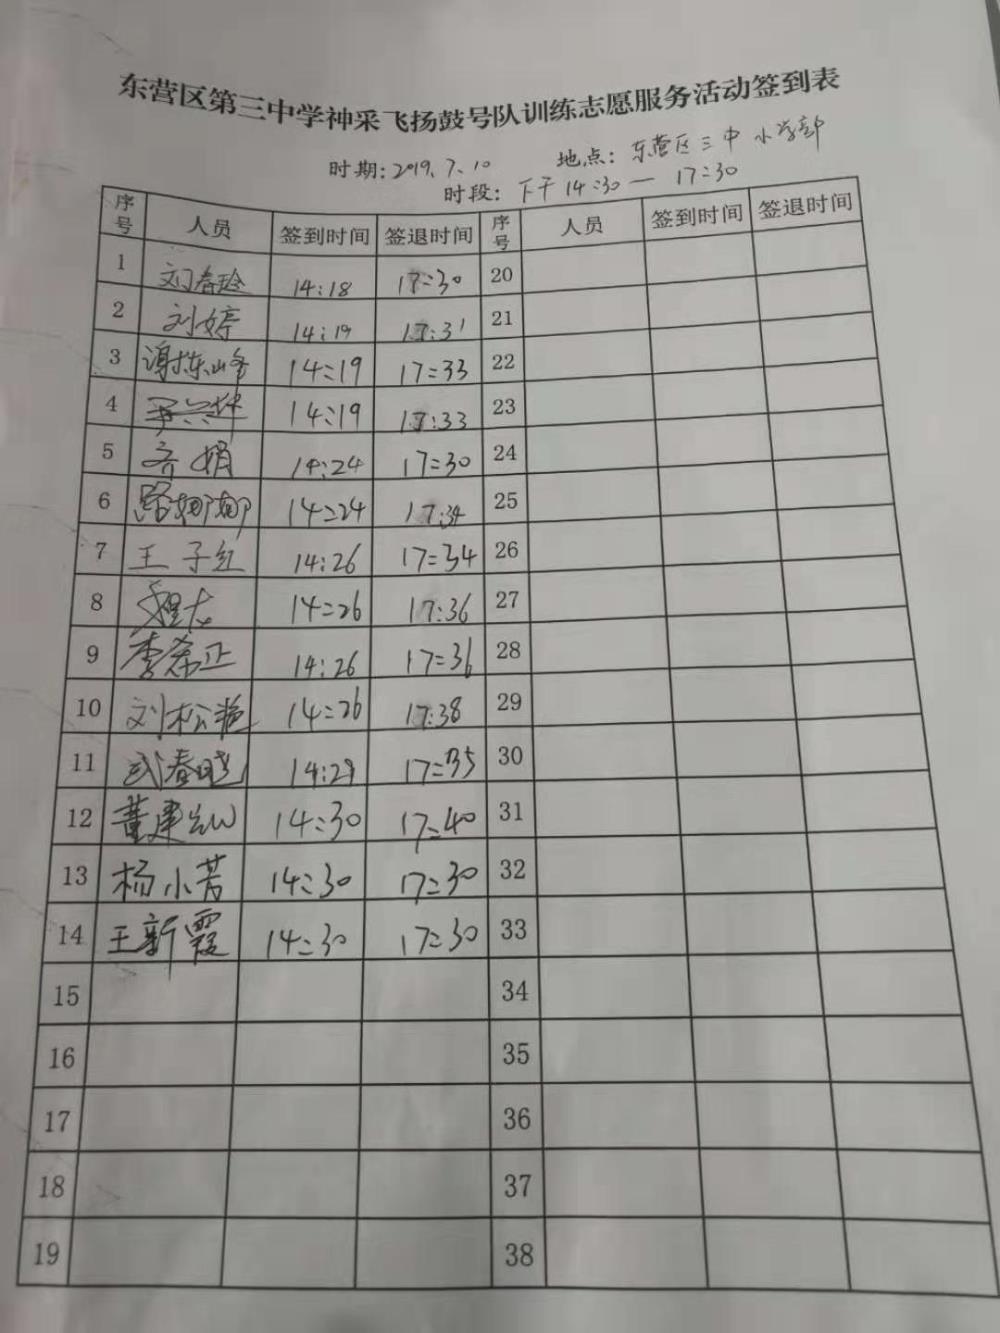 东营区第三中学神采飞扬鼓号队训练志愿服务活动签到表
时期: 2019.7.10 地点: 东营区三中小学部
时段: 下午14:30—17:30
序号 人员 签到时间 签退时间 序号 人员 签到时间 签退时间
1 刘春玲 14:18 17:30 20
2 刘婷 14:19 17:31 21
3 谢栋山峰 14:19 17:33 22
4 14:19 17:33 23
5 齐娟 14:24 17:30 24
6 路娜娜 14:24 17:34 25
7 王子红 14:26 17:34 26
8 14:26 17:36 27
9 李希正 14:26 17:36 28
10 刘松艳 14:26 17:38 29
11 武春晓 14:29 17:35 30
12 董建 14:30 17:40 31
13 杨小芳 14:30 17:30 32
14 王新霞 14:30 17:30 33
15 34
16 35
17 36
18 37
19 38